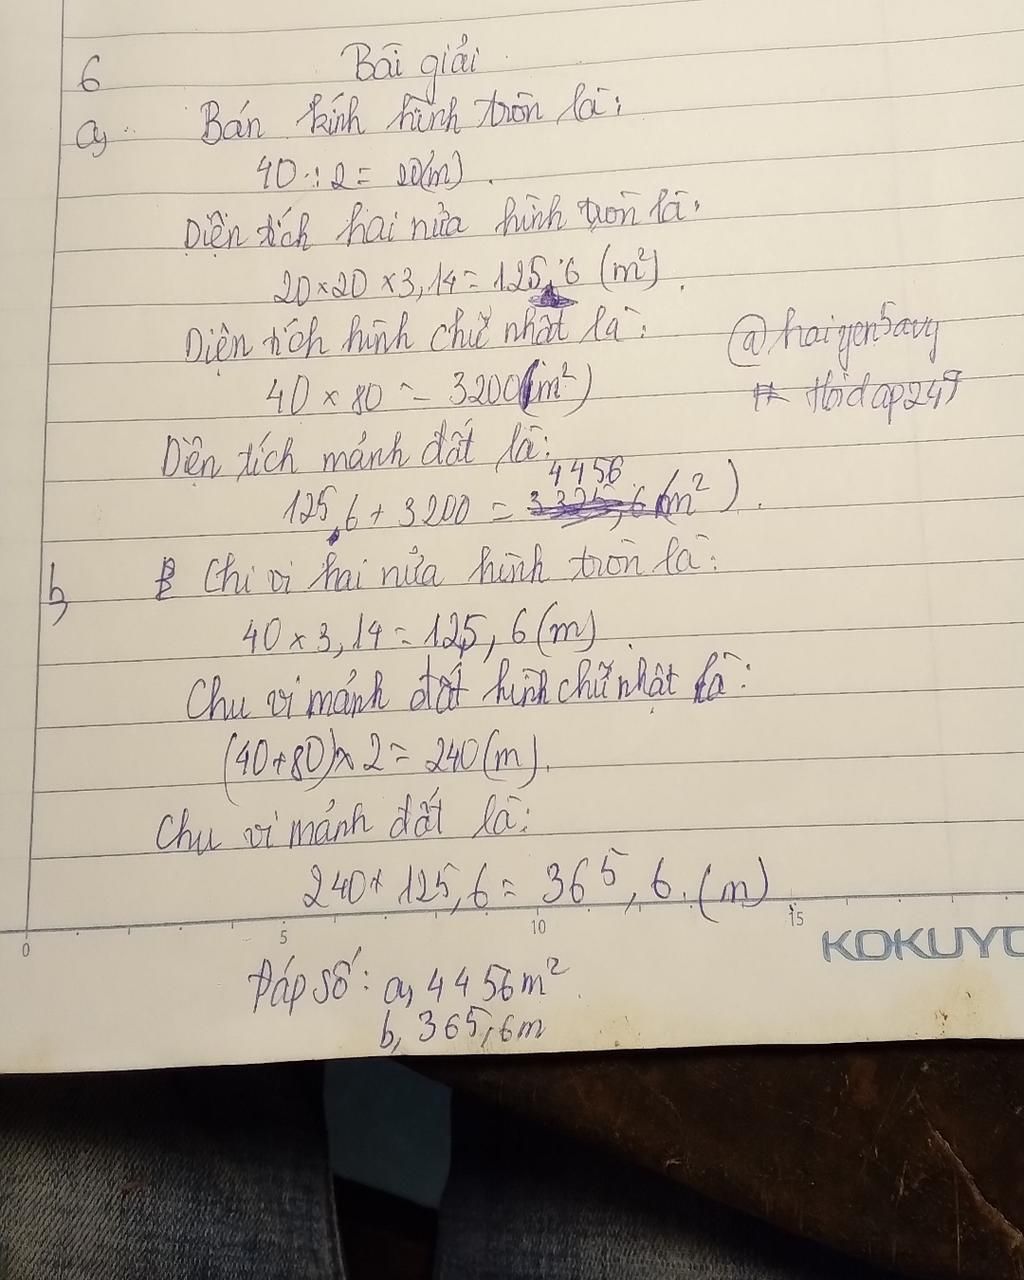 6 Bài giải
a, Bán kính hình tròn là:
40 : 2 = 20(m)
Diện tích hai nửa hình tròn là:
20 × 20 × 3,14 = 125,6 (m²)
Diện tích hình chữ nhật là:
@haiyen5avy
40 × 80 = 3200(m²)
# Hoidap247
Diện tích mảnh đất là:
4456
125,6 + 3200 = (m²).
b, Chi vi hai nửa hình tròn là:
40 × 3,14 = 125,6(m)
Chu vi mảnh đất hình chữ nhật là:
(40+80)× 2 = 240(m).
Chu vi mảnh đất là:
240+ 125,6 = 365,6.(m)
0 5 10 15
KOKUYO
Đáp số: a, 4456m²
b, 365,6m